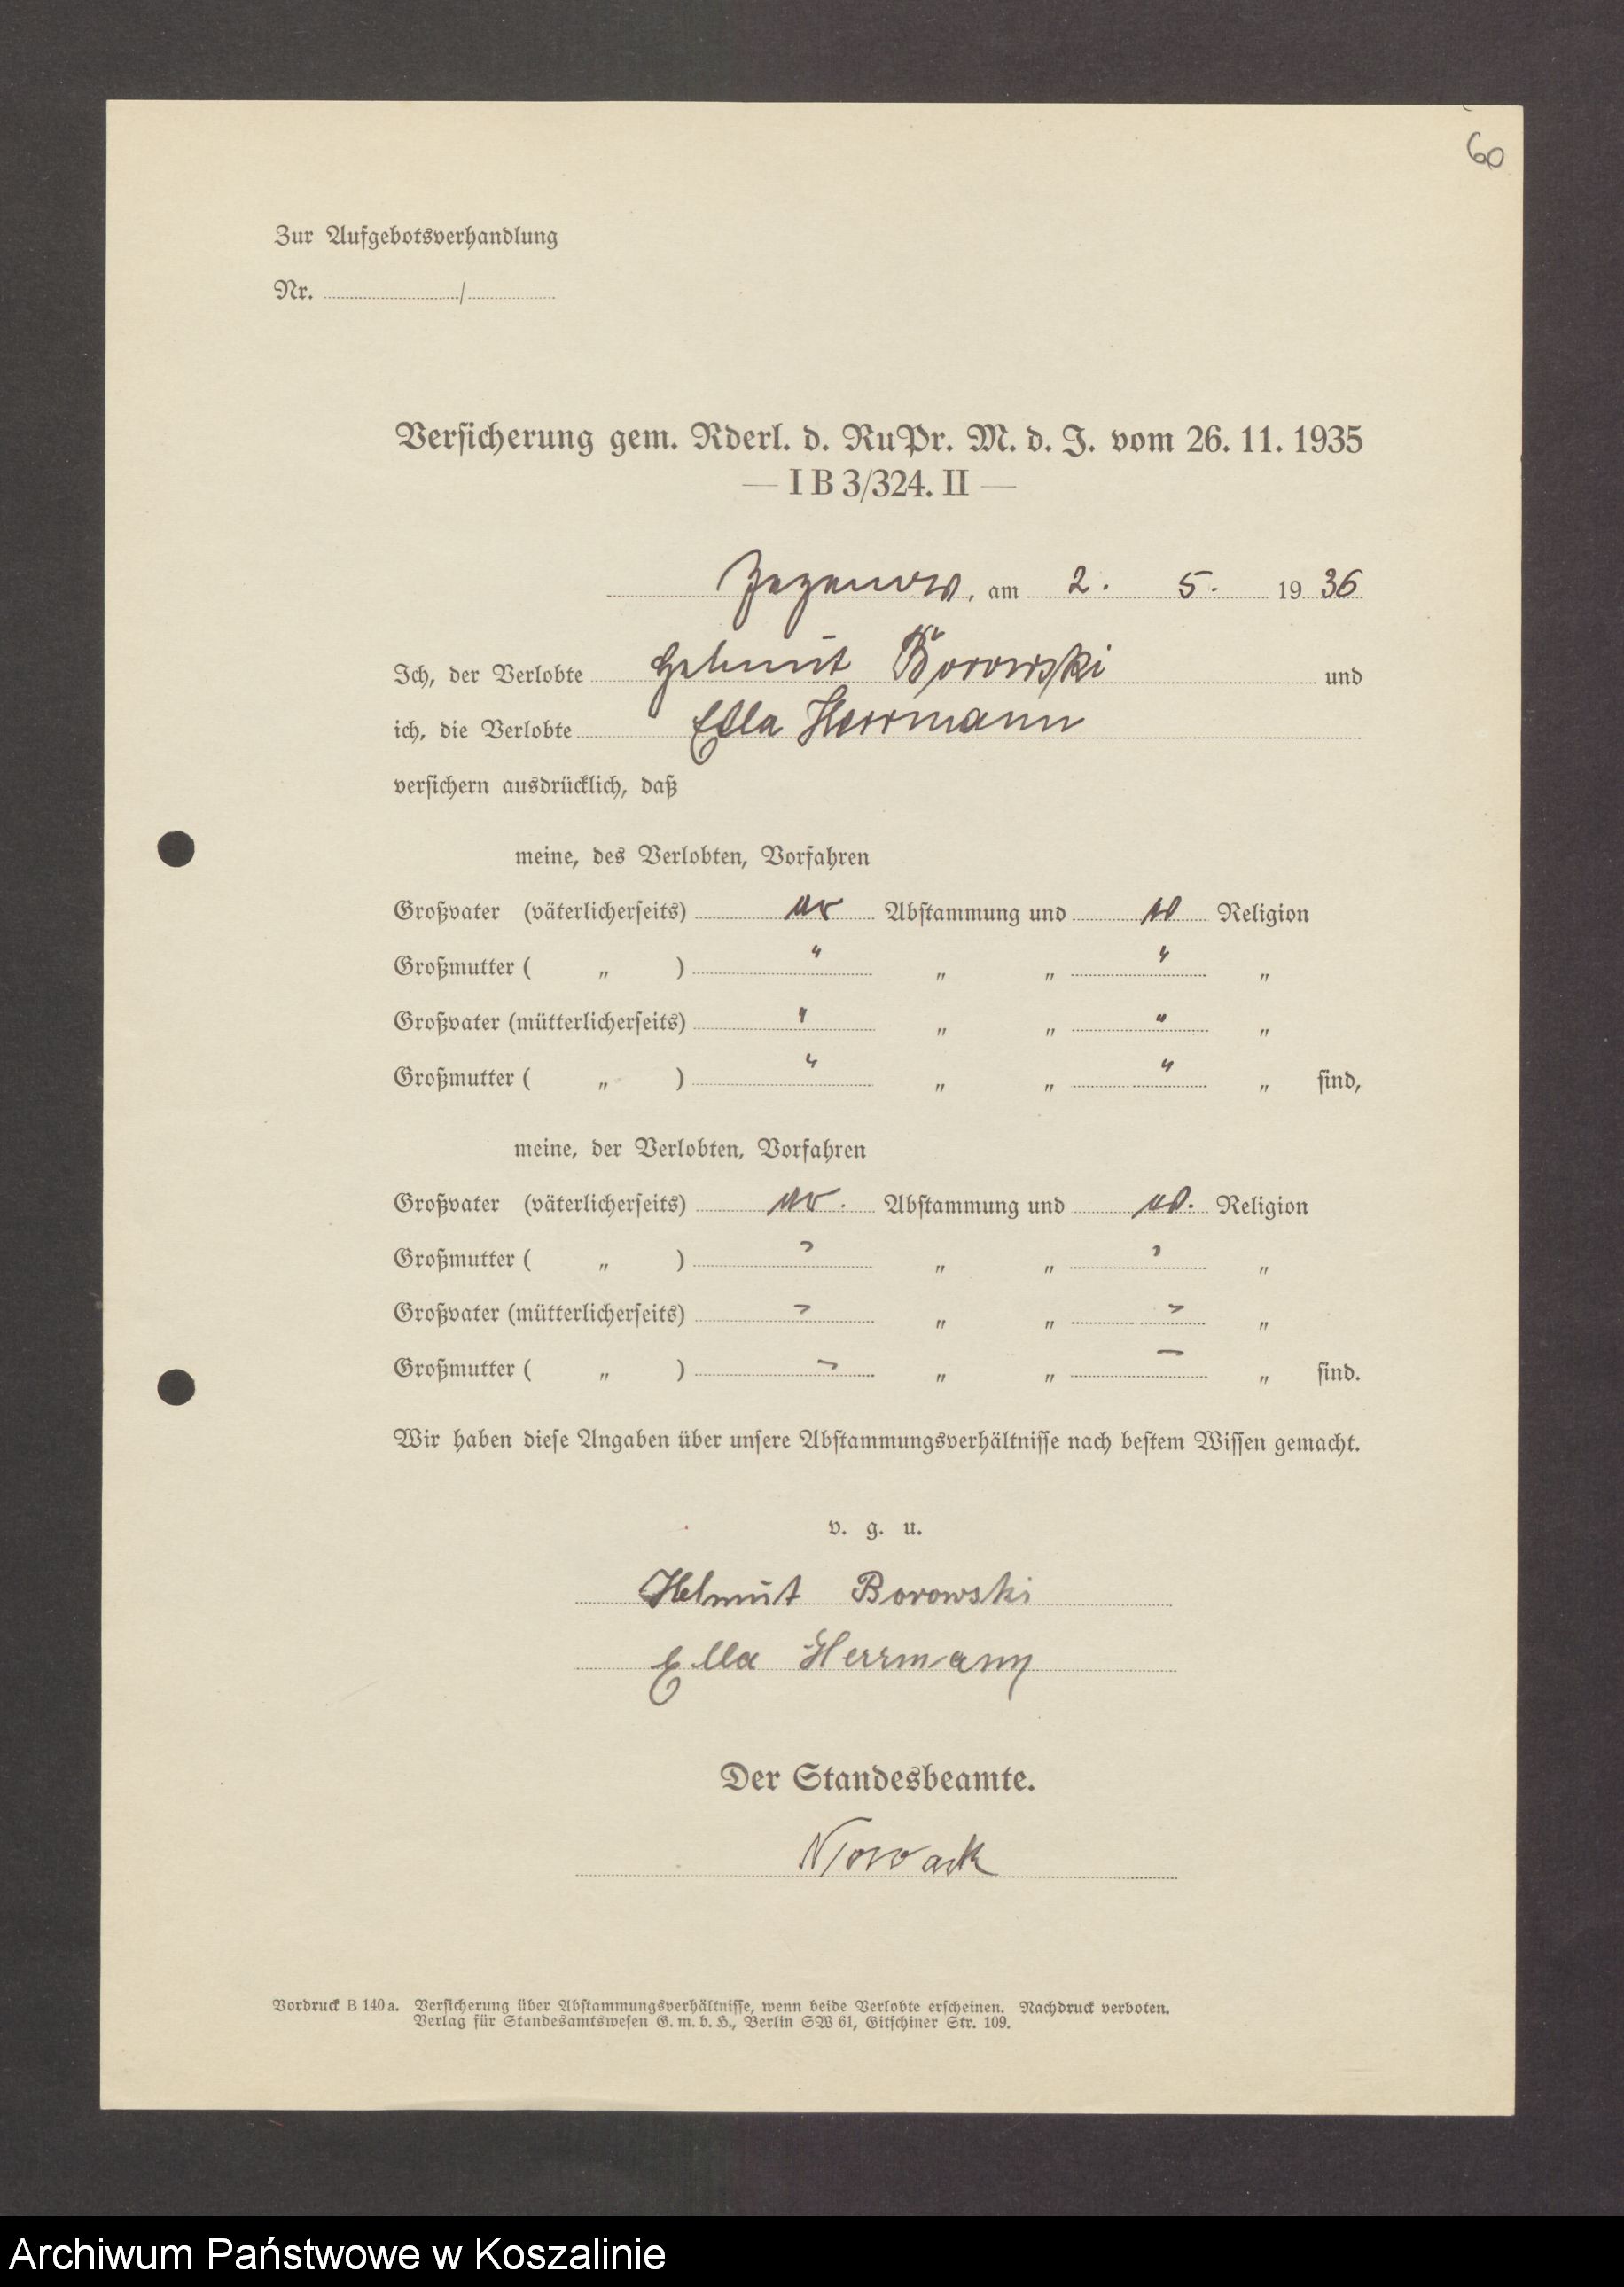 60
Zur Aufgebotsverhandlung
Nr. /
Versicherung gem. Rderl. d. RuPr. M. d. J. vom 26. 11. 1935
— I B 3/324. II —
Zezenow, am 2. 5. 1936
Ich, der Verlobte Helmut Borowski und
ich, die Verlobte Ella Herrmann
versichern ausdrücklich, daß
meine, des Verlobten, Vorfahren
Großvater (väterlicherseits) ar Abstammung und ev Religion
Großmutter ( „ ) " „ „ " „
Großvater (mütterlicherseits) " „ „ " „
Großmutter ( „ ) " „ „ " „ sind,
meine, der Verlobten, Vorfahren
Großvater (väterlicherseits) ar. Abstammung und ev. Religion
Großmutter ( „ ) " „ „ " „
Großvater (mütterlicherseits) " „ „ " „
Großmutter ( „ ) " „ „ " „ sind.
Wir haben diese Angaben über unsere Abstammungsverhältnisse nach bestem Wissen gemacht.
v. g. u.
Helmut Borowski
Ella Herrmann
Der Standesbeamte.
Nowack
Vordruck B 140 a. Versicherung über Abstammungsverhältnisse, wenn beide Verlobte erscheinen. Nachdruck verboten.
Verlag für Standesamtswesen G. m. b. H., Berlin SW 61, Gitschiner Str. 109.
Archiwum Państwowe w Koszalinie